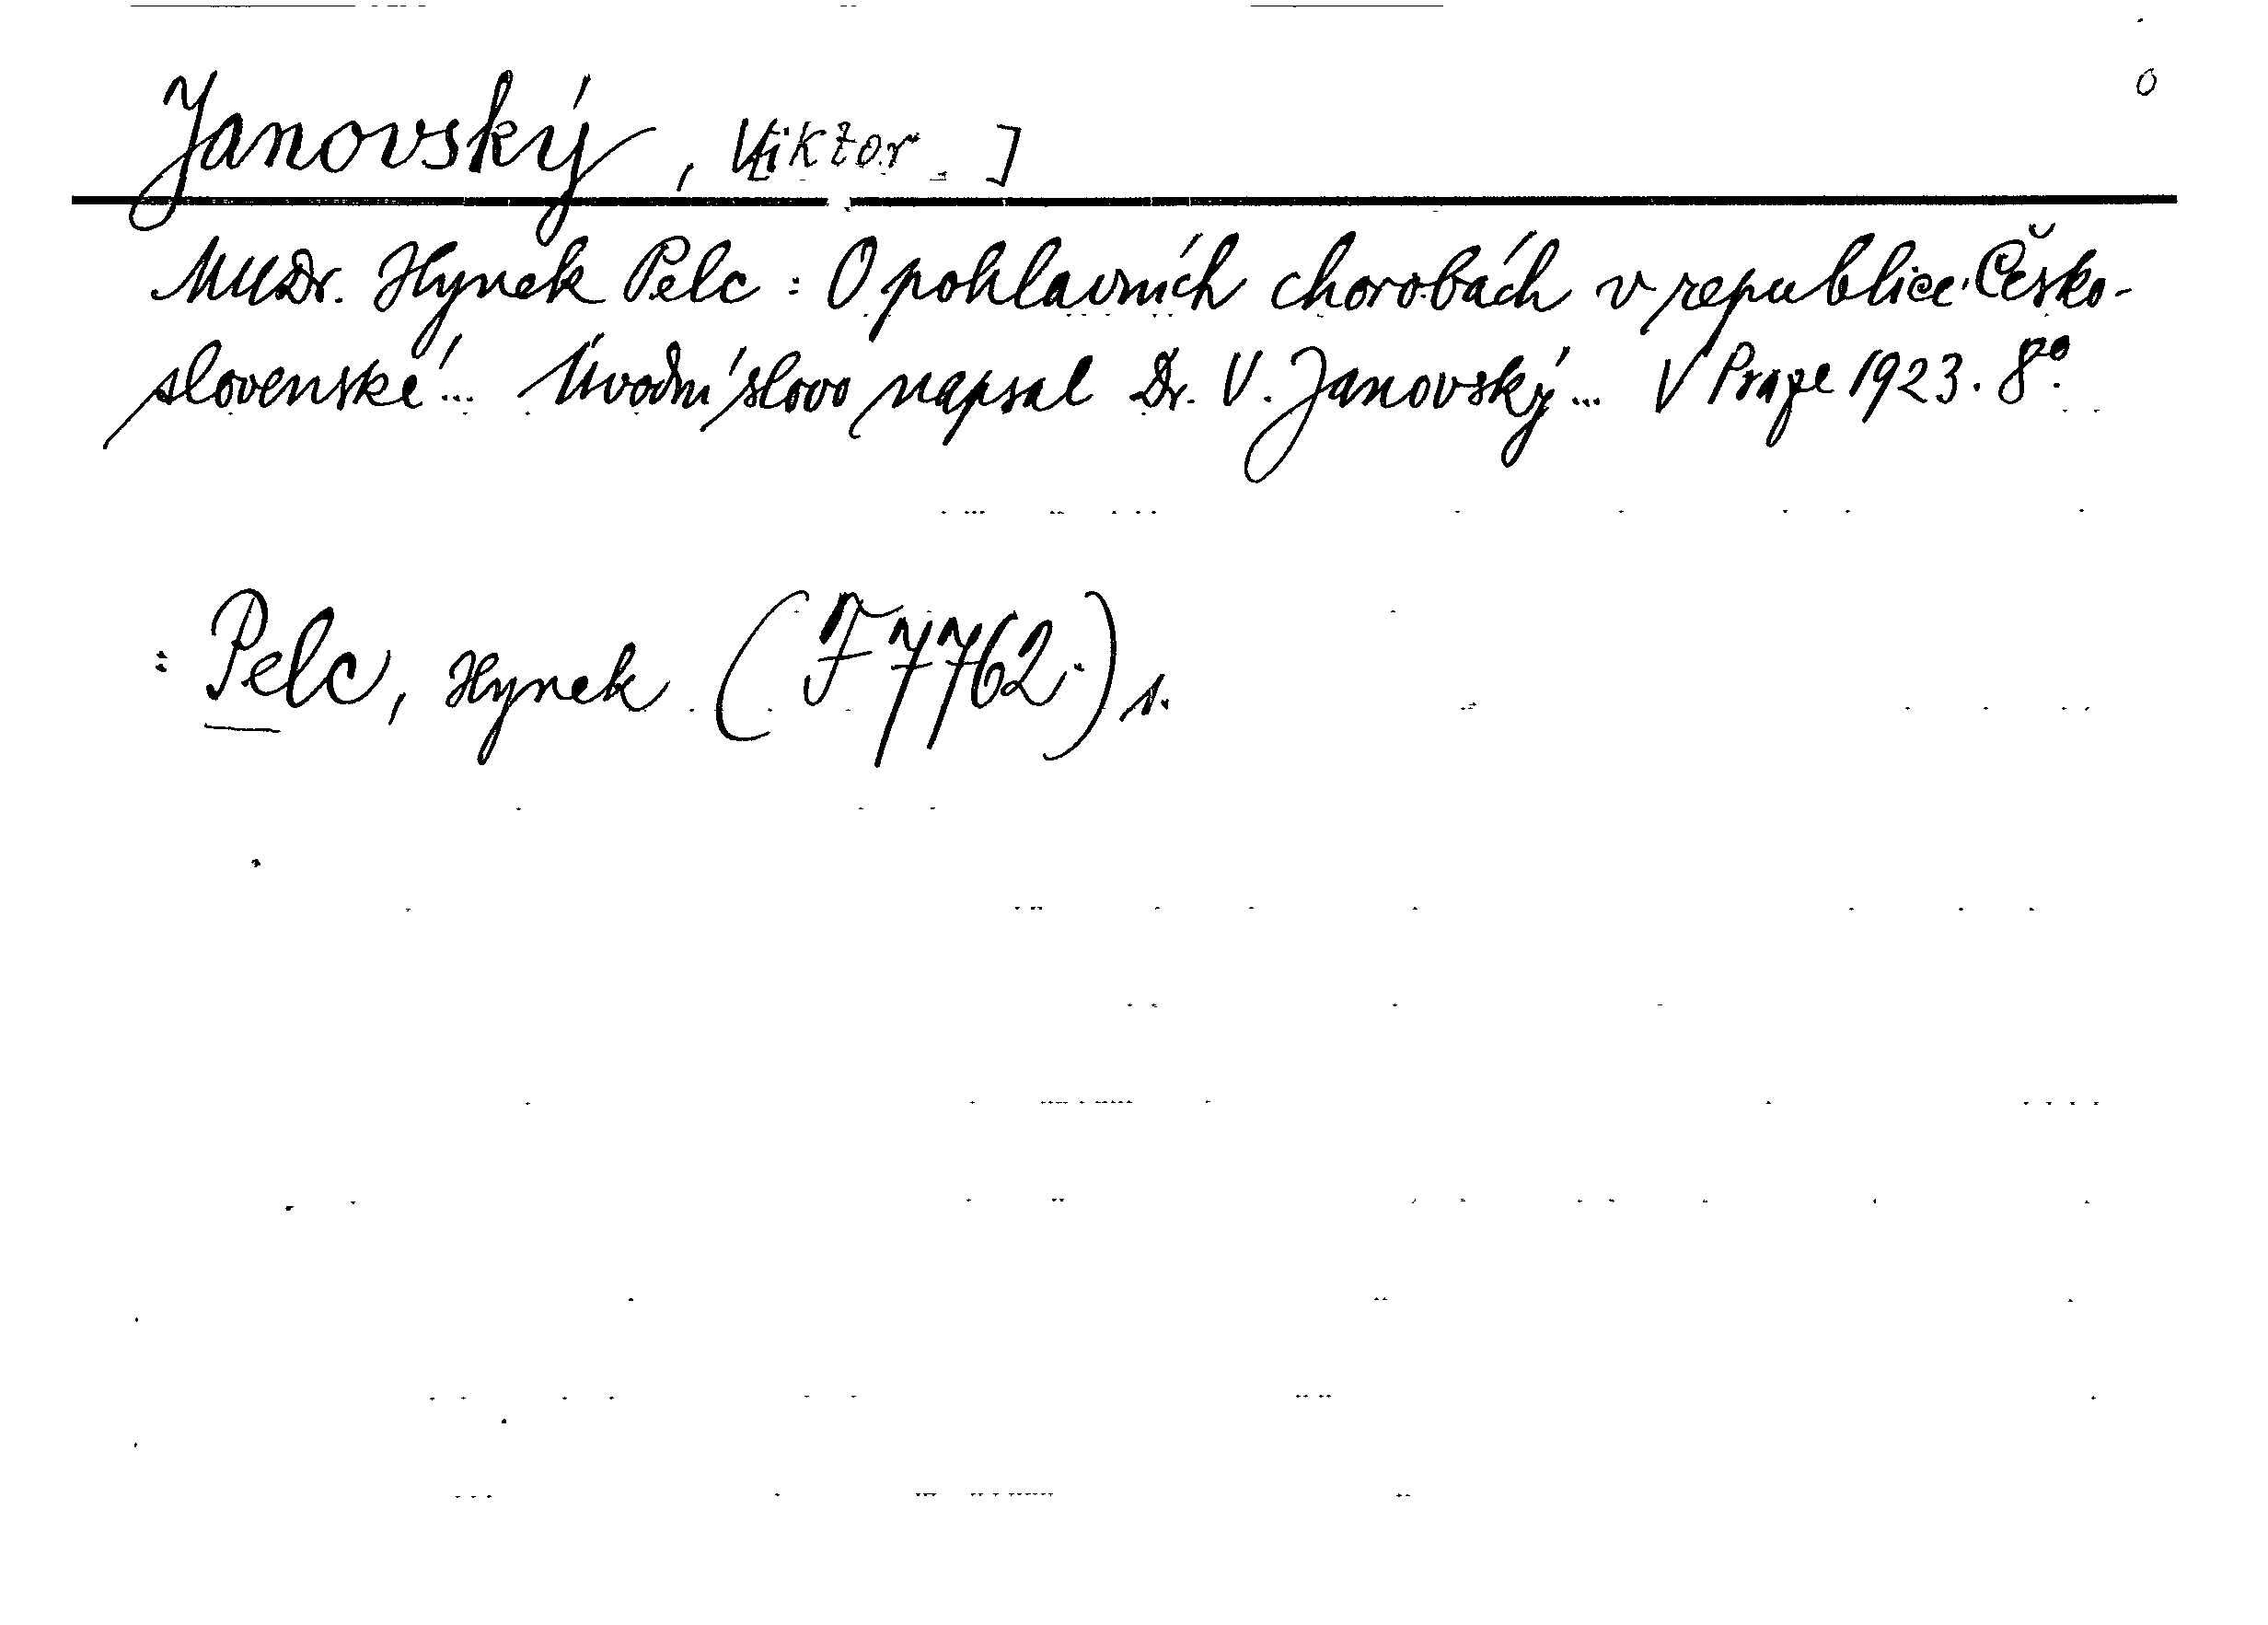 Janovský, Viktor ]
MUDr. Hynek Pelc: O pohlavních chorobách v republice Česko-
slovenské... Úvodní slovo napsal Dr. V. Janovský... V Praze 1923. 8°.
: Pelc, Hynek (F 7762) 1.